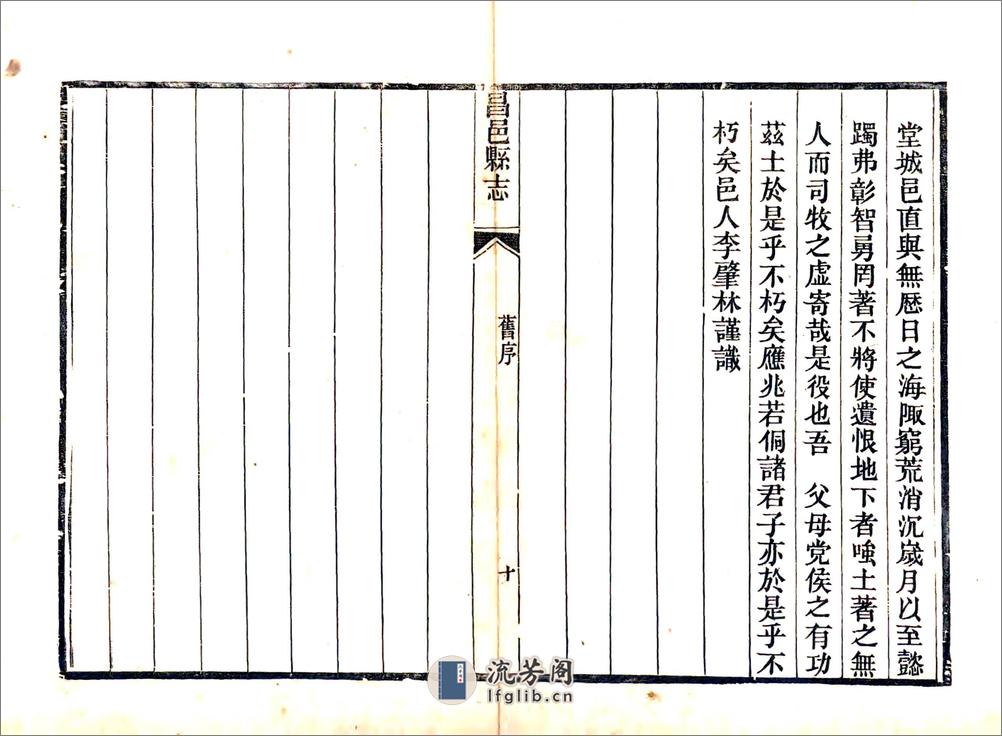 堂城邑直與無歷日之海陬窮荒消沉歲月以至懿
躅弗彰智勇罔著不將使遺恨地下者嗤土著之無
人而司牧之虛寄哉是役也吾　父母党侯之有功
茲土於是乎不朽矣應兆若侗諸君子亦於是乎不
朽矣邑人李肇林謹識
昌邑縣志
舊序
十
流芳阁
lfglib.cn